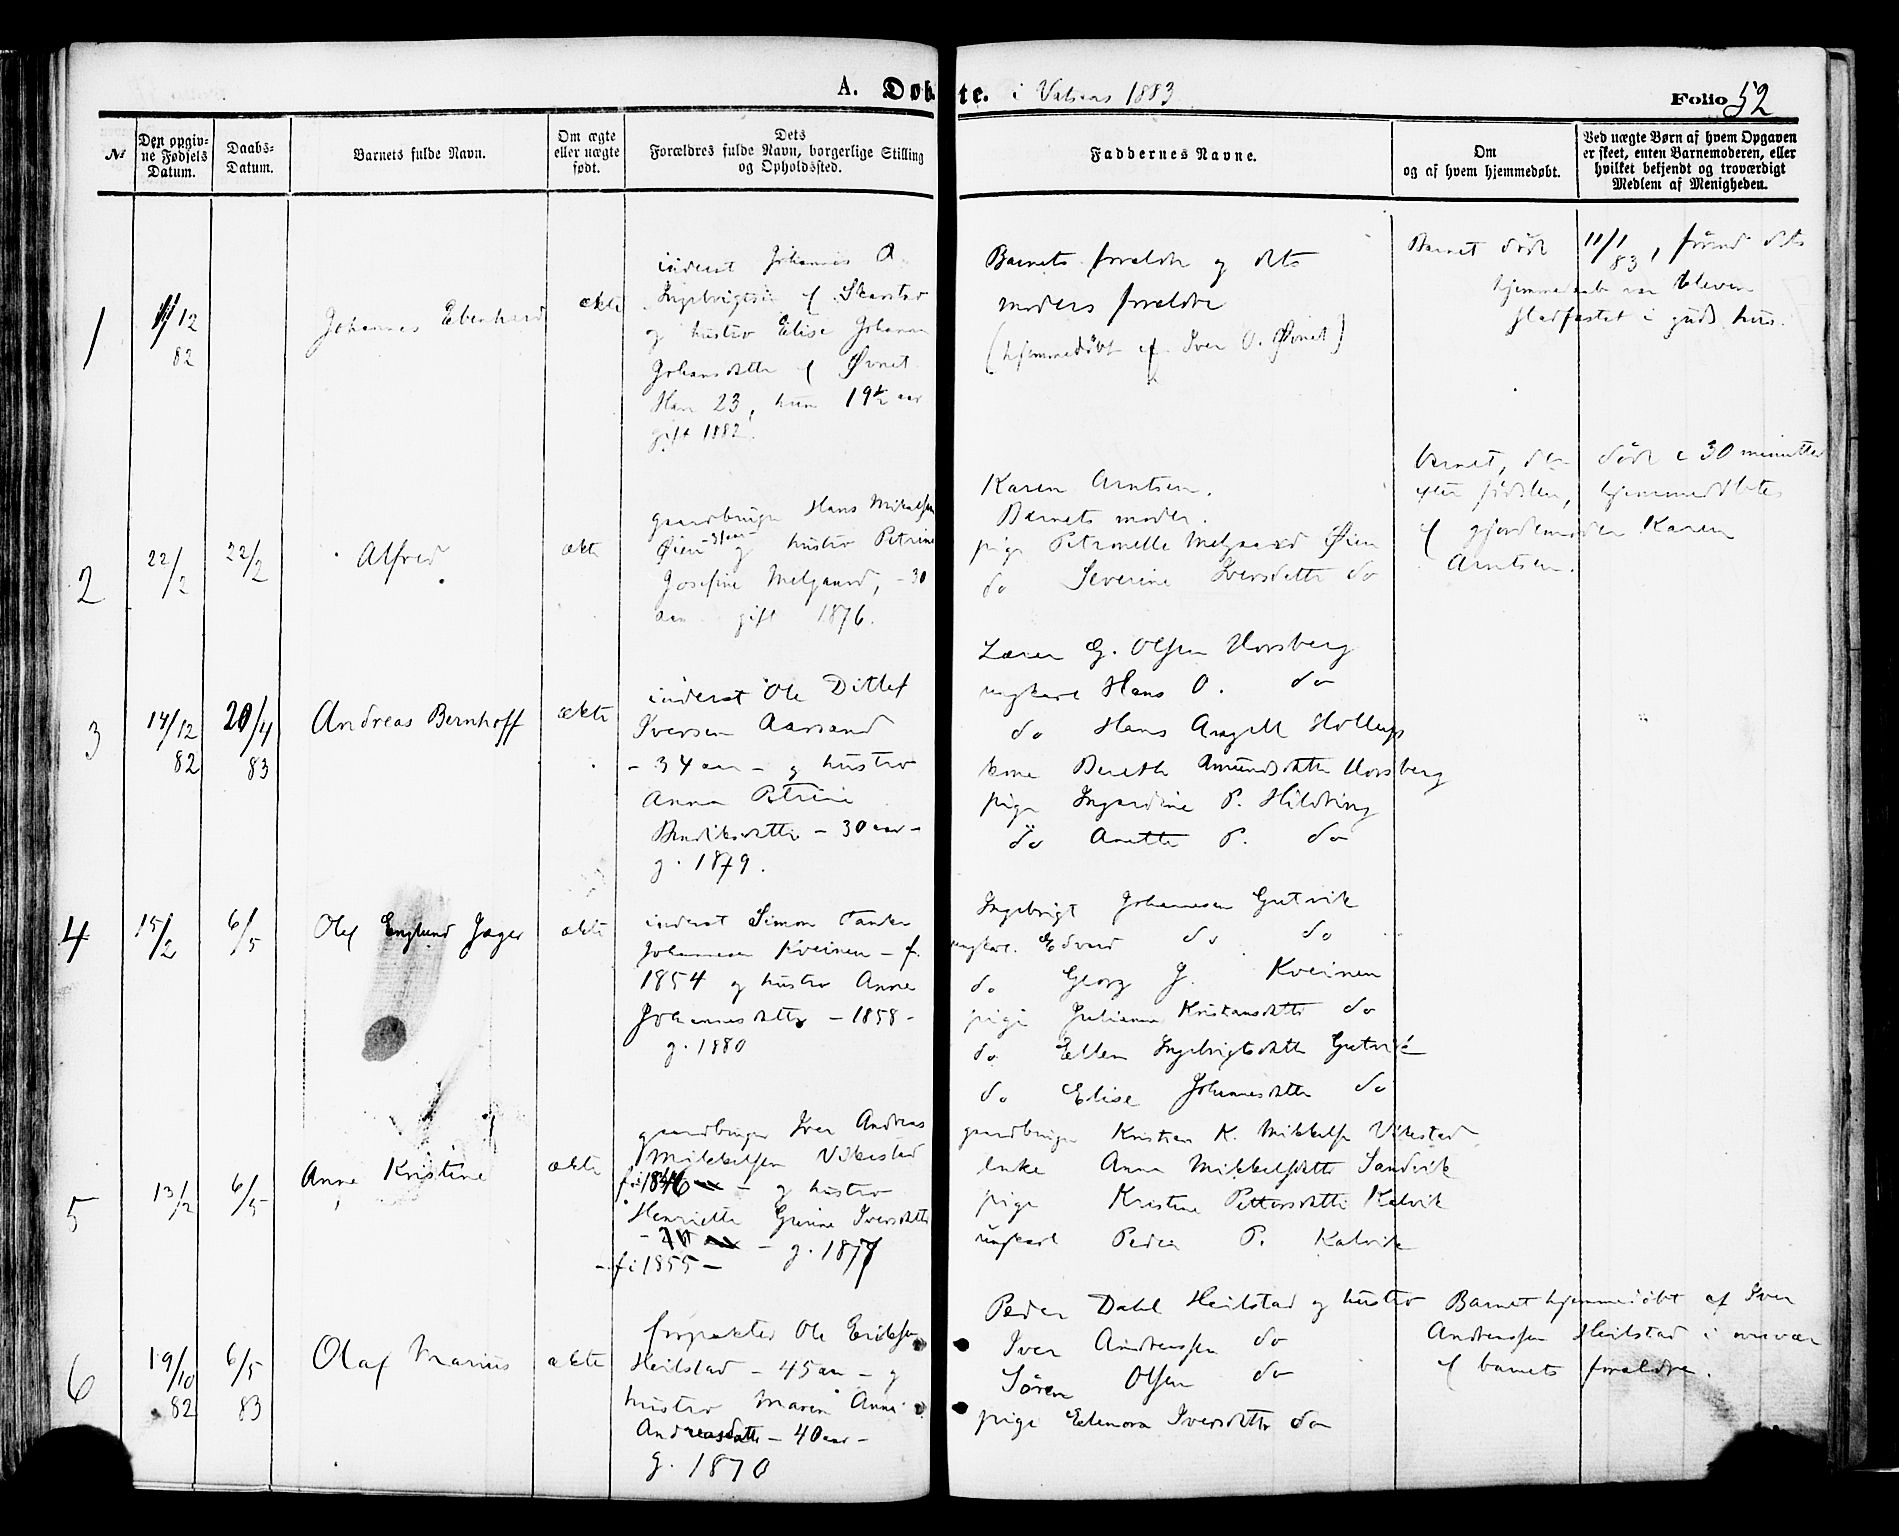 A. Døbte. i Valsnes 1883
Folio 52
№
Den opgiv-
ne Fødsels
Datum.
Daabs-
Datum.
Barnets fulde Navn.
Om ægte
eller uægte
født.
Dets
Forældres fulde Navn, borgerlige Stilling
og Opholdssted.
Faddernes Navne.
Om
og af hvem hjemmedøbt.
Ved uægte Børn af hvem Opgaven
er skeet, enten Barnemoderen, eller
hvilket bekjendt og troværdigt
Medlem af Menigheden.
1
12
82
Johannes Eberhard
ækte
inderst Johannes A.
Ingebrigtsen f Skarstad
og hustro Elise Johanna
Johansdatter f Øvnet
Han 23, hun 19½ aar
gift 1882.
Barnets forældre og dets
moders forældre
(hjemmedøbt af Iver O. Øvnet)
Barnet døde 11/1 83, førend dets
hjemmedaab var bleven
stadfæstet i guds hus.
2
22/2
22/2
Alfred
ækte
gaardbruger Hans Mikalsen
Øien og hustro Petrine
Josefine Melgaard, - 30
aar gift 1876.
Karen Arntsen.
Barnets moder.
pige Petronelle Melgaard Øien
do Severine Iversdatter do
barnet, der døde i 30 minutter
efter fødslen, hjemmedøbtes
af gjordemoder Karen
Arntsen.
3
14/12
82
20/4
83
Andreas Bernhoff
ækte
inderst Ole Ditlef
Iversen Aarsand
- 34 aar - og hustro
Anna Petrine
Bendiksdatter - 30 aar -
g. 1879.
Lærer G. Olsen Horsberg
ungkarl Hans O. do
do Hans Hollup
kone Bereth Amundsdatter Horsberg
pige Ingardine P. Hildring
do Anette P. do
4
15/2
6/5
Olaf Englund Jæger
ækte
inderst Simon Tander
Johannesen Kveinen - f.
1854 og hustro Anne
Johannesdatter - 1858 -
g. 1880
Ingebrigt Johannesen Gutvik
ungkarl. Edvard do do
do Georg J. Kveinen
pige Juliana Kristiansdatter do
do Ellen Ingebrigtsdatter Gutvik
do Elise Johannesdatter do
5
13/2
6/5
Anne Kristine
ækte
gaardbruger Iver Andreas
Mikkelsen Vikestad
f. i 1846 - og hustro
Henriette Iversdatter
- g. 1877
- f. i 1855 -
gaardbruger Kristian K. Mikkelsen Vikestad
enke Anna Mikkelsdatter Sandvik
pige Kristine Pettersdatter Kalvik
ungkarl Peder P. Kalvik
6
19/10
82
6/5
83
Olaf Marius
ækte
forpakter Ole Eriksen
Heilstad - 45 aar - og
hustro Maren Anna
Andreasdatter - 40 aar -
g. 1870
Peder Dahl Heilstad og hustro
Iver Andreassen do
Søren Olsen do
pige Elenora Iversdatter do
Barnet hjemmedøbt af Iver
Andreassen Heilstad i overvær
af barnets forældre.